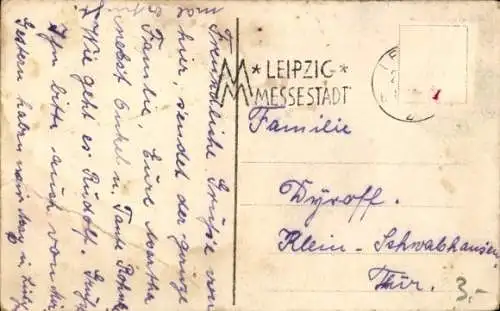 Freundliche Grüße von
hier, sendet der ganze
Familie, Eure Martha
nebst Onkel u. Tante
Wie geht es Rudolf.
Ihn bitte auch von mir
Gestern haben wir
mal
* LEIPZIG *
MESSESTADT
Familie
Dÿroff.
Klein-Schwabhausen
Thür.
3.-